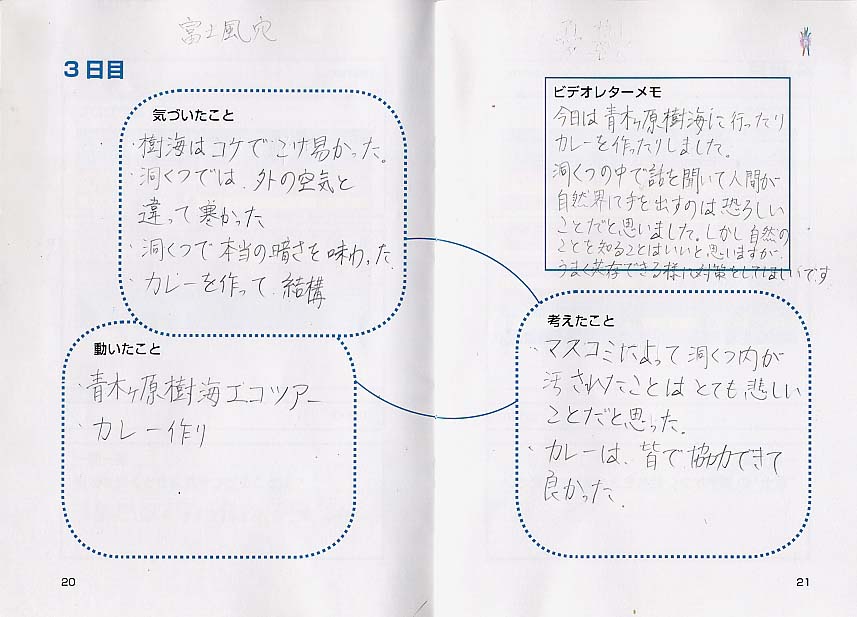 富士風穴
3日目
気づいたこと
・樹海はコケでこけ易かった。
・洞くつでは、外の空気と
違って寒かった
・洞くつで本当の暗さを味わった
・カレーを作って、結構
動いたこと
・青木ヶ原樹海エコツアー
・カレー作り
20
ビデオレターメモ
今日は青木ヶ原樹海に行ったり
カレーを作ったりしました。
洞くつの中で話を聞いて人間が
自然界に手を出すのは恐ろしい
ことだと思いました。しかし自然の
ことを知ることはいいと思いますが、
うまく共存できる様に対策をしてほしいです
考えたこと
・マスコミによって洞くつ内が
汚されたことはとても悲しい
ことだと思った。
・カレーは、皆で協力できて
良かった。
21